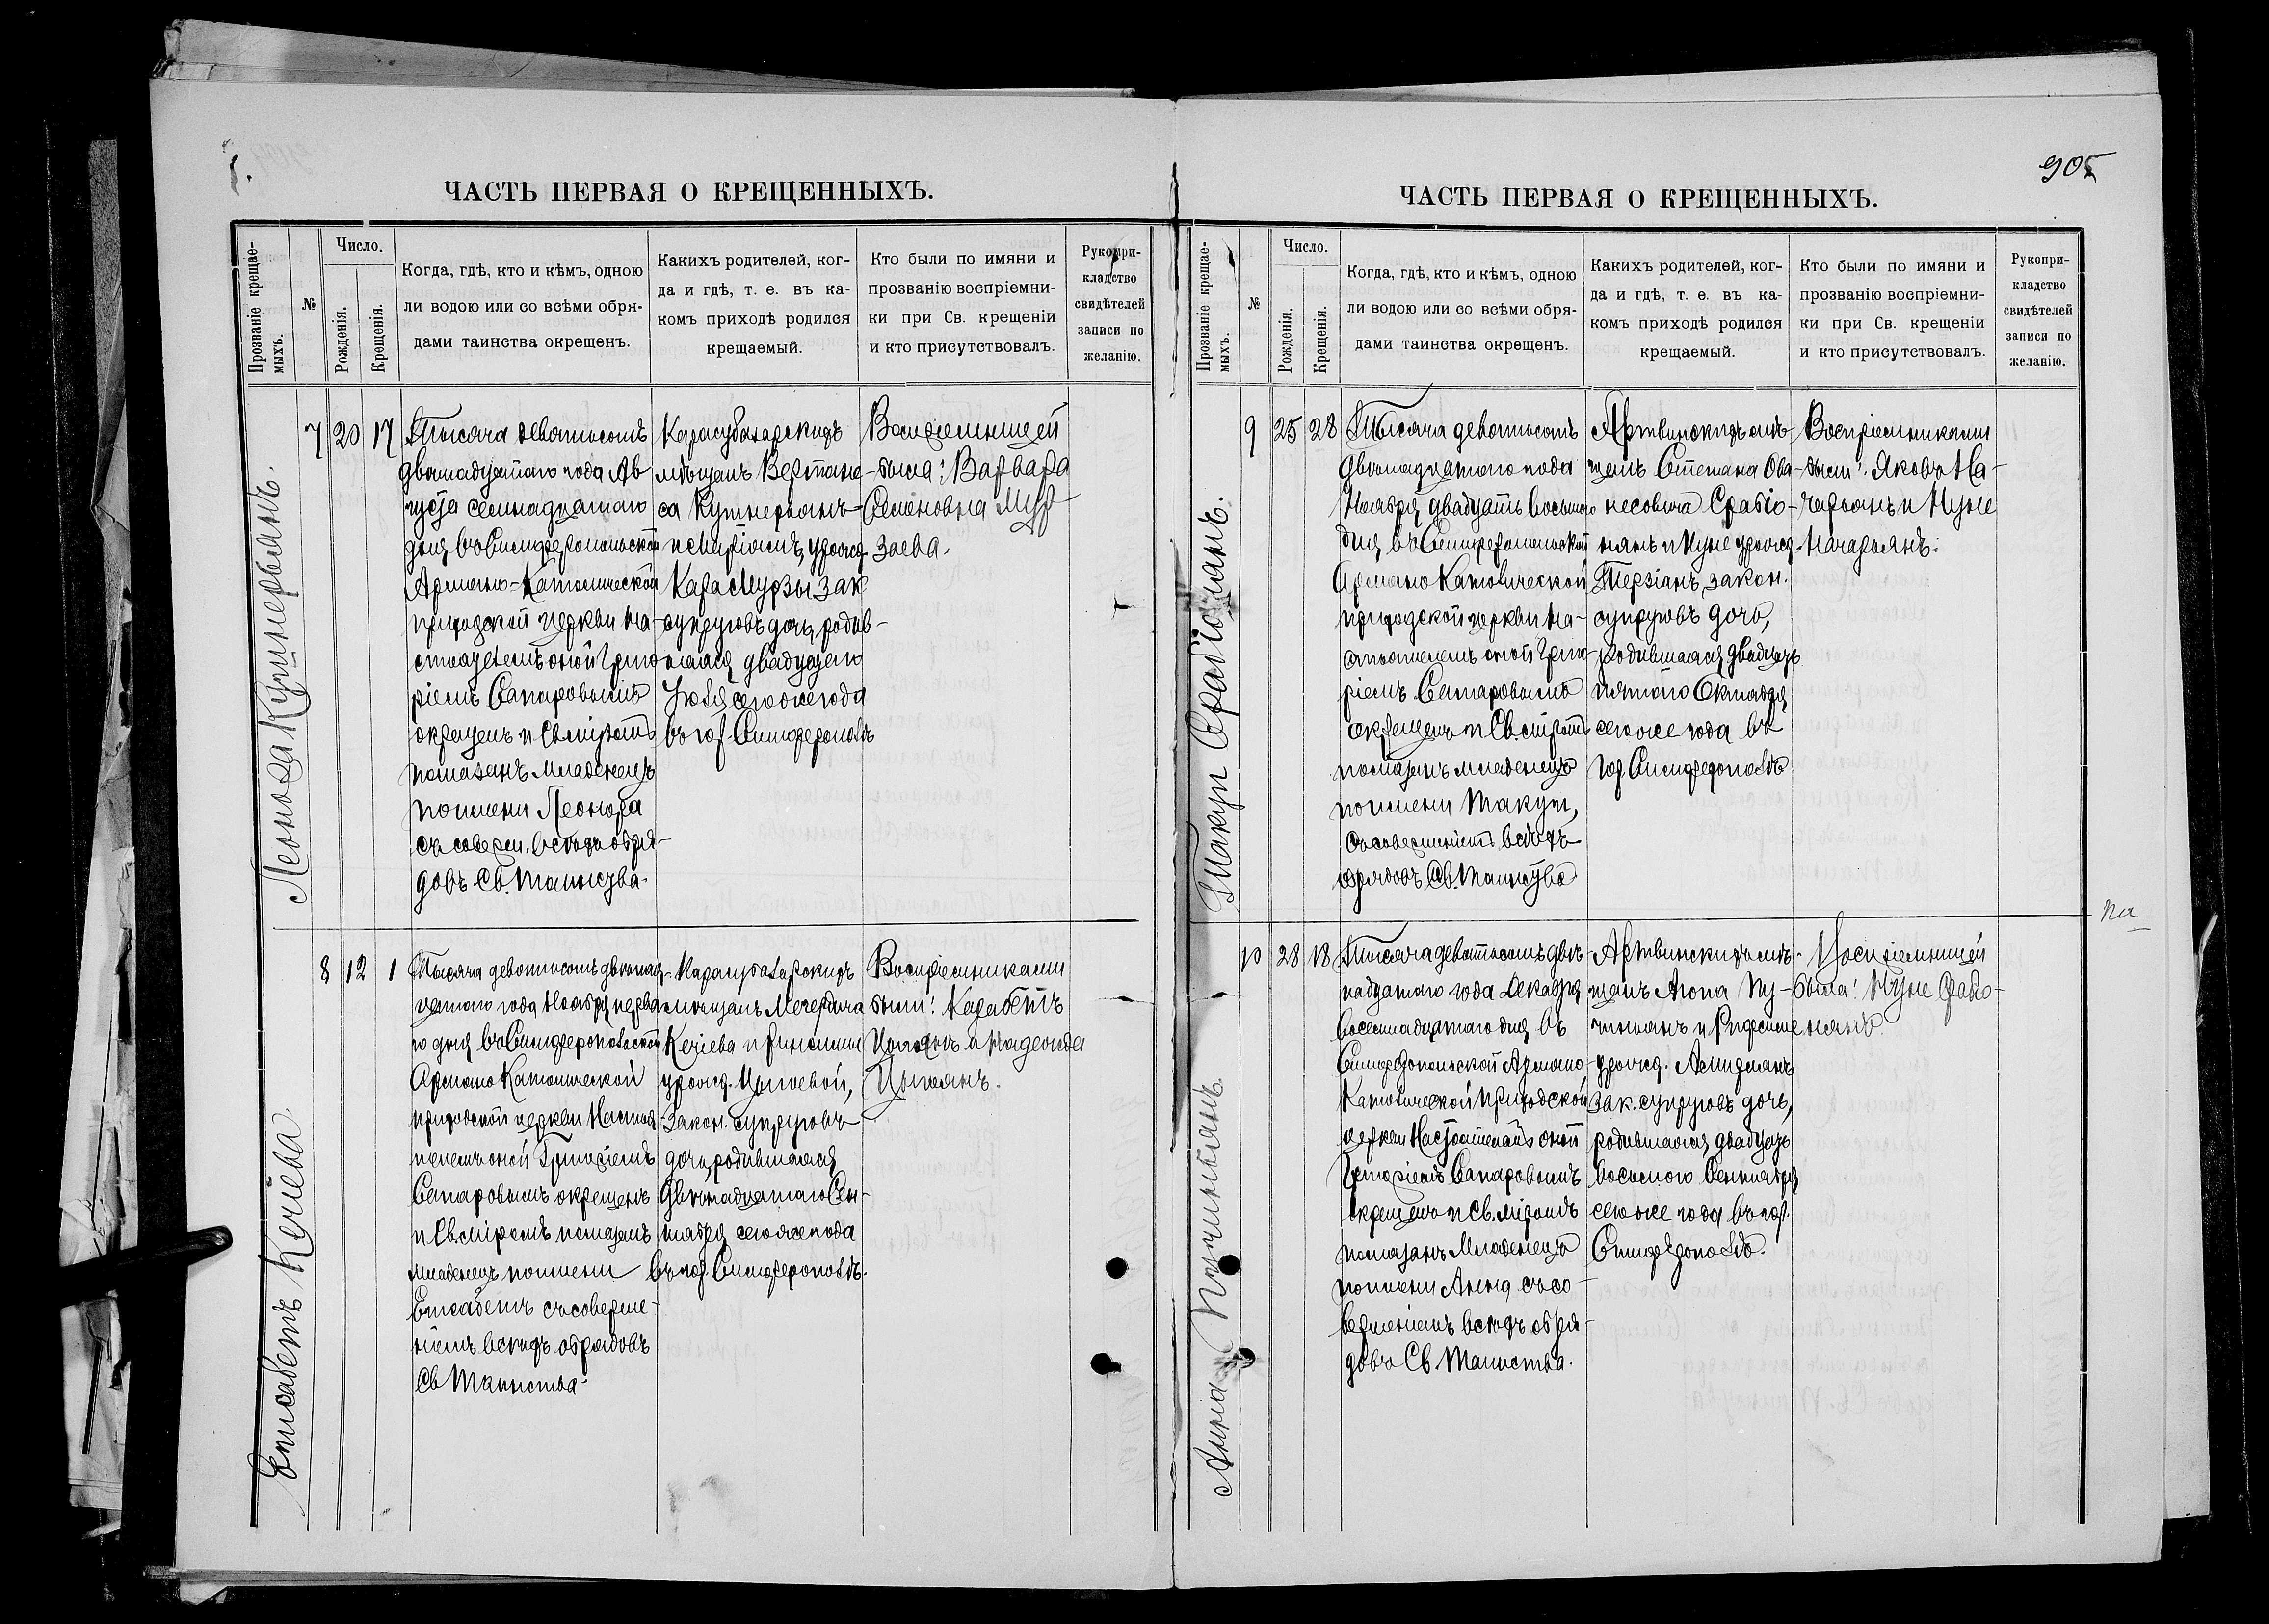 905
ЧАСТЬ ПЕРВАЯ О КРЕЩЕННЫХЪ.
Прозваніе крещае-
мыхъ.
№
Число.
Рожденія.
Крещенія.
Когда, гдѣ, кто и кѣмъ, одною
ли водою или со всѣми обря-
дами таинства окрещенъ.
Какихъ родителей, ког-
да и гдѣ, т. е. въ ка-
комъ приходѣ родился
крещаемый.
Кто были по имяни и
прозванію воспріемни-
ки при Св. крещеніи
и кто присутствовалъ.
Рукопри-
кладство
свидѣтелей
записи по
желанію.
7
20
17
Тысяча девятьсотъ
двѣнадцатаго года Ав
густа семнадцатаго
дня въ Симферопольской
Армяно-Католической
приходской церкви на-
стоятелемъ оной Григо
ріемъ Сапаровымъ
окрещенъ и Св. мѵромъ
помазанъ младенецъ
по имени Леонора
съ соверш. всѣхъ обря-
довъ Св. Таинства.
Карасубазарскихъ
мѣщанъ Вертане-
са
и Маріамъ, урожд.
Кара Мурзы зак
супруговъ дочь, родив-
шаяся двадцатаго
Іюля сего же года
въ гор. Симферополѣ
Воспріемницей
была: Варвара
Семеновна Мур-
заева.
8
12
1
Тысяча девятьсотъ двѣнад-
цатаго года Ноября перва
го дня въ Симферопольской
Армяно Католической
приходской церкви Настоя-
телемъ оной Григоріемъ
Сапаровымъ окрещенъ
и Св. мѵромъ помазанъ
младенецъ по имени
Елисабетъ съ соверше-
ніемъ всѣхъ обрядовъ
Св Таинства
Елисабетъ Кечіева
Карасубазарскихъ
мѣщанъ
Кечіева и
урожд.
Закон. супруговъ
дочь, родившаяся
двѣнадцатаго Сен-
тября сего же года
въ гор. Симферополѣ.
Воспріемниками
были: Карабетъ
и Надежда
ЧАСТЬ ПЕРВАЯ О КРЕЩЕННЫХЪ.
Прозваніе крещае-
мыхъ.
№
Число.
Рожденія.
Крещенія.
Когда, гдѣ, кто и кѣмъ, одною
ли водою или со всѣми обря-
дами таинства окрещенъ.
Какихъ родителей, ког-
да и гдѣ, т. е. въ ка-
комъ приходѣ родился
крещаемый.
Кто были по имяни и
прозванію воспріемни-
ки при Св. крещеніи
и кто присутствовалъ.
Рукопри-
кладство
свидѣтелей
записи по
желанію.
Такуи Срабіонянъ.
9
25
28
Тысяча девятьсотъ
двѣнадцатаго года
Ноября двадцать восьмаго
дня въ Симферопольской
Армяно Католической
приходской церкви на-
стоятелемъ оной Григо-
ріемъ Сапаровымъ
окрещенъ и Св. мѵромъ
помазанъ младенецъ
по имени Такуи,
съ совершеніемъ всѣхъ
обрядовъ Св. Таинства
Артвинскихъ мѣ-
щанъ Степана Ова-
несовича Срабіо-
нянъ и Нуне урожд.
Терзіанъ, закон.
супруговъ дочь,
родившаяся двадцать
пятаго Октября
сего же года въ
гор Симферополѣ
Воспріемниками
были: Яковъ На-
чарьянъ и Нуне
Начарьянъ.
10
28
18
Тысяча девятьсотъ двѣ-
надцатаго года Декабря
восемнадцатаго дня въ
Симферопольской Армяно
Католической Приходской
церкви Настоятелемъ оной
Григоріемъ Сапаровымъ
окрещенъ и Св. мѵромъ
помазанъ Младенецъ
по имени Анна съ со
вершеніемъ всѣхъ обря-
довъ Св. Таинства.
Артвинскихъ мѣ-
щанъ Акопа
и Рипсиме
урожд.
Зак. супруговъ дочь,
родившаяся двадцать
восьмого Сентября
сего же года въ гор.
Симферополѣ.
Воспріемницей
была: Нуне Срабіо-
нянъ.